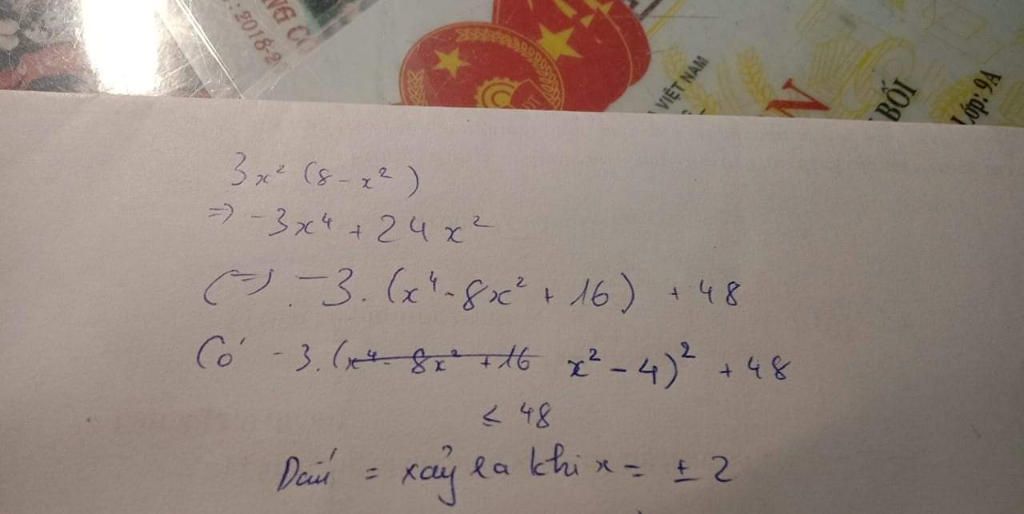 NG CÔ
:2018-2
VIỆT NAM
N
BỐI
Lớp: 9A
3x² (8 - x²)
=> -3x⁴ + 24x²
(=) -3.(x⁴ - 8x² + 16) + 48
Có -3.(x⁴ - 8x² + 16 x² - 4)² + 48
≤ 48
Dấu = xảy ra khi x = ± 2